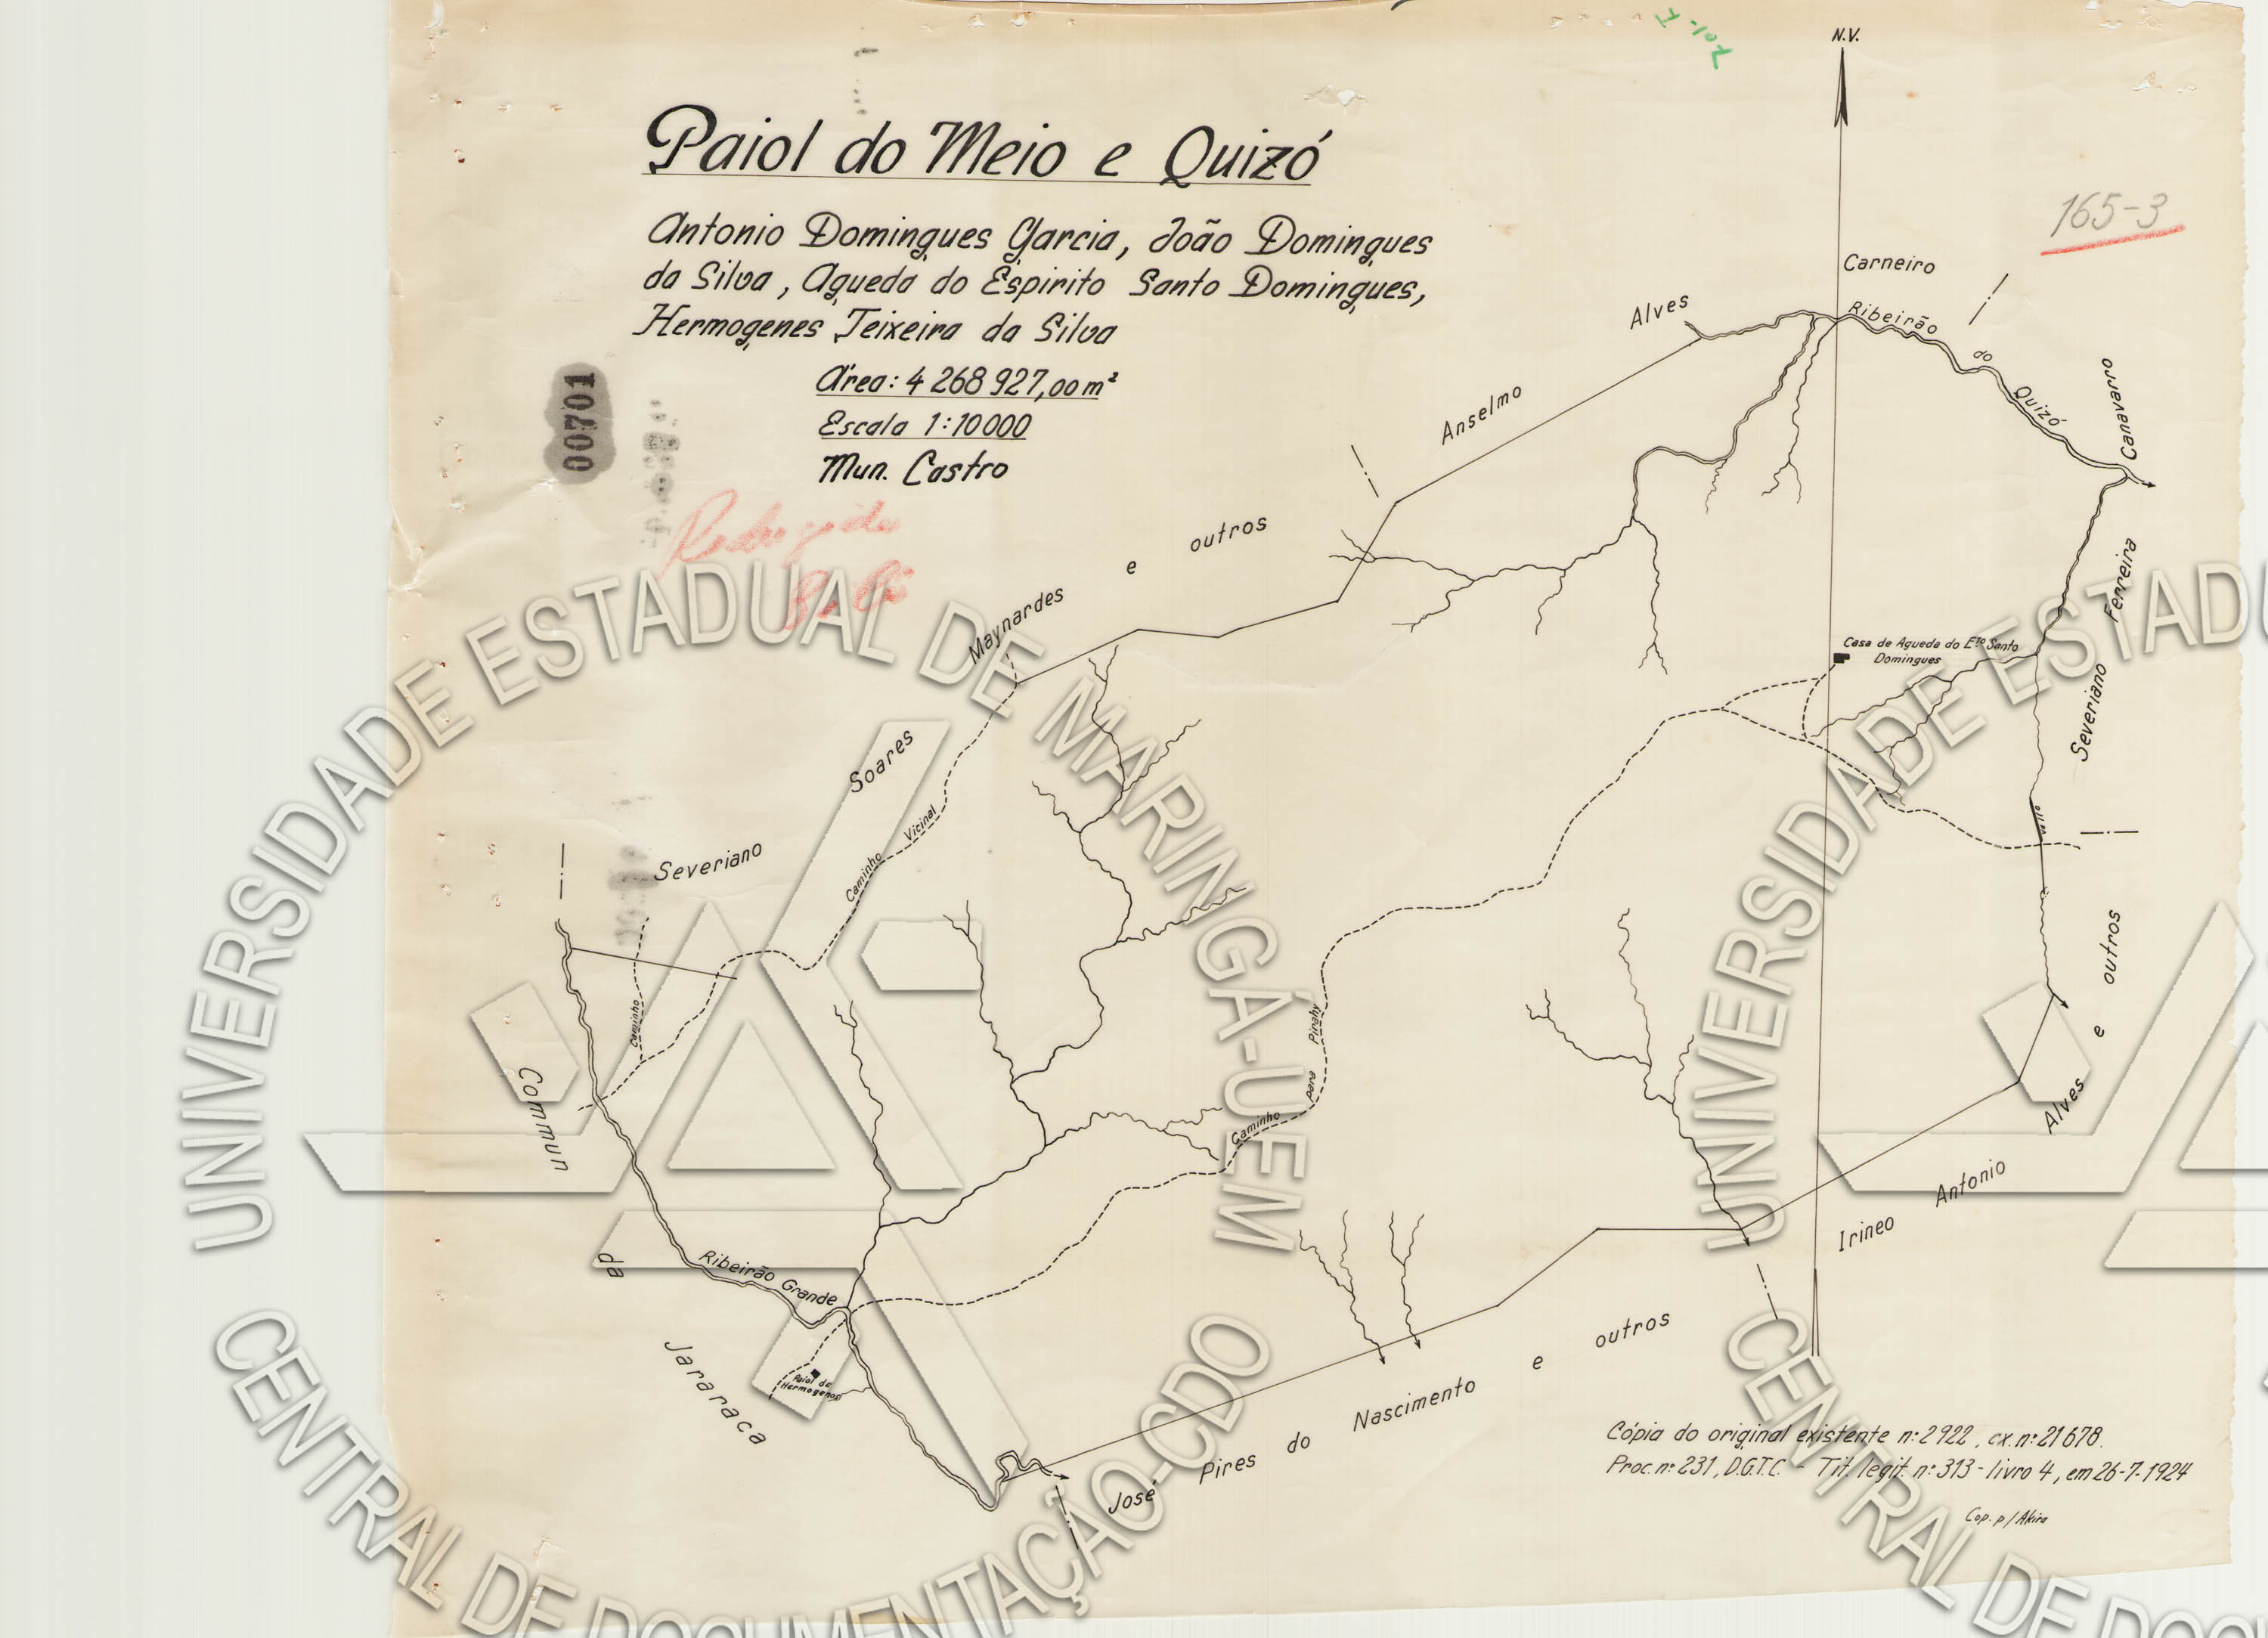 N.V.
I-107
Paiol do Meio e Quizó
165-3
Antonio Domingues Garcia, João Domingues
da Silva, Agueda do Espirito Santo Domingues,
Hermogenes Teixeira da Silva
Área: 4 268 927,00 m²
Escala 1:10000
Mun. Castro
00701
Carneiro
Alves
Anselmo
Ribeirão do Quizó
Canavarro
Ferreira
Severiano
outros
e
Maynardes
Casa de Agueda do Eto Santo
Domingues
Soares
Severiano
Caminho Vicinal
Caminho
vallo
outros
e
Alves
Antonio
Irineo
Caminho para Pirahy
Commun
da
Jararaca
Ribeirão Grande
Paiol de
Hermogenes
José Pires do Nascimento e outros
Cópia do original existente nº 2922, cx. nº 21678.
Proc. nº 231, D.G.T.C. - Tit. legit. nº 313 - livro 4, em 26-7-1924
Cop. p/ Akira
UNIVERSIDADE ESTADUAL DE MARINGÁ-UEM
CENTRAL DE DOCUMENTAÇÃO-CDO
UNIVERSIDADE ESTAD
CENTRAL DE DOC